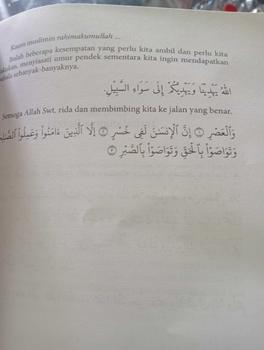 Kaum muslimin rahimakumullah ...
Itulah beberapa kesempatan yang perlu kita ambil dan perlu kita
lakukan, menyiasati umur pendek sementara kita ingin mendapatkan
pahala sebanyak-banyaknya.
اَللهُ يَهْدِيْنَا وَيَهْدِيْكُمْ إِلَى سَوَاءِ السَّبِيْلِ.
Semoga Allah Swt, rida dan membimbing kita ke jalan yang benar.
وَالْعَصْرِ ۝١ إِنَّ الْإِنسَانَ لَفِى خُسْرٍ ۝٢ إِلَّا الَّذِينَ ءَامَنُوا۟ وَعَمِلُوا۟
وَتَوَاصَوْا۟ بِالْحَقِّ وَتَوَاصَوْا۟ بِالصَّبْرِ ۝٣